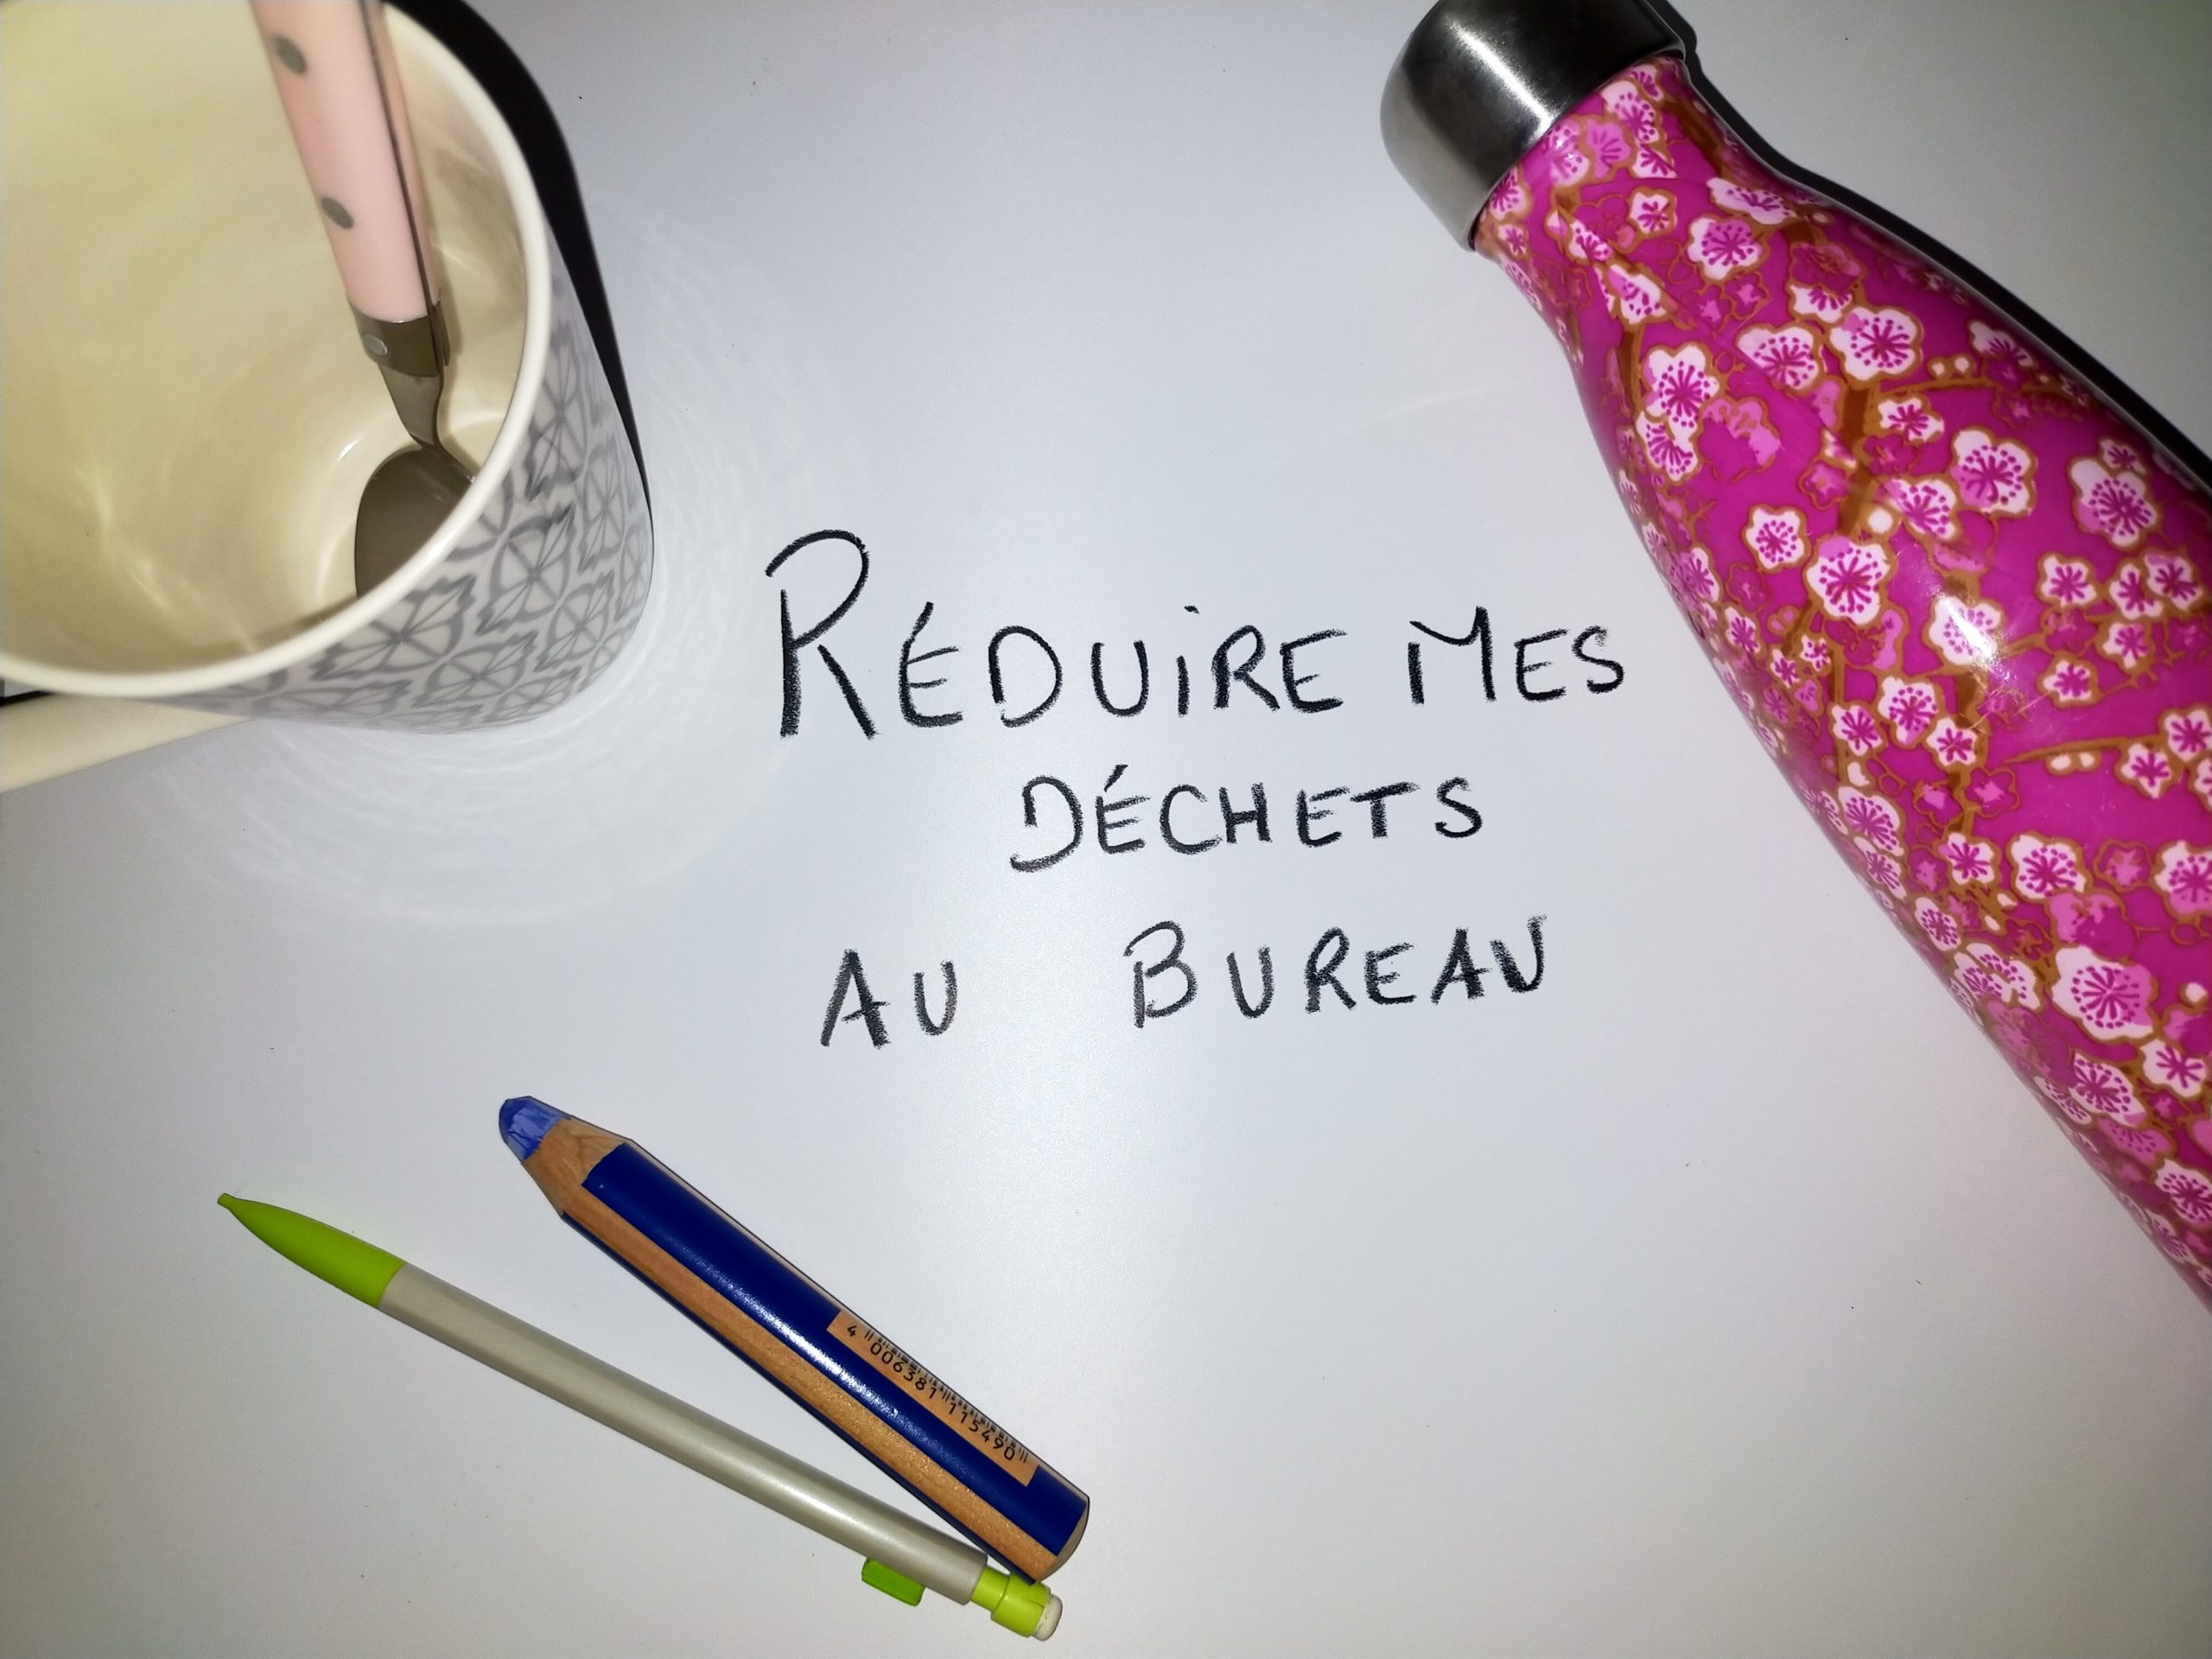 RÉDUIRE MES
DÉCHETS
AU BUREAU
4 006381 115490